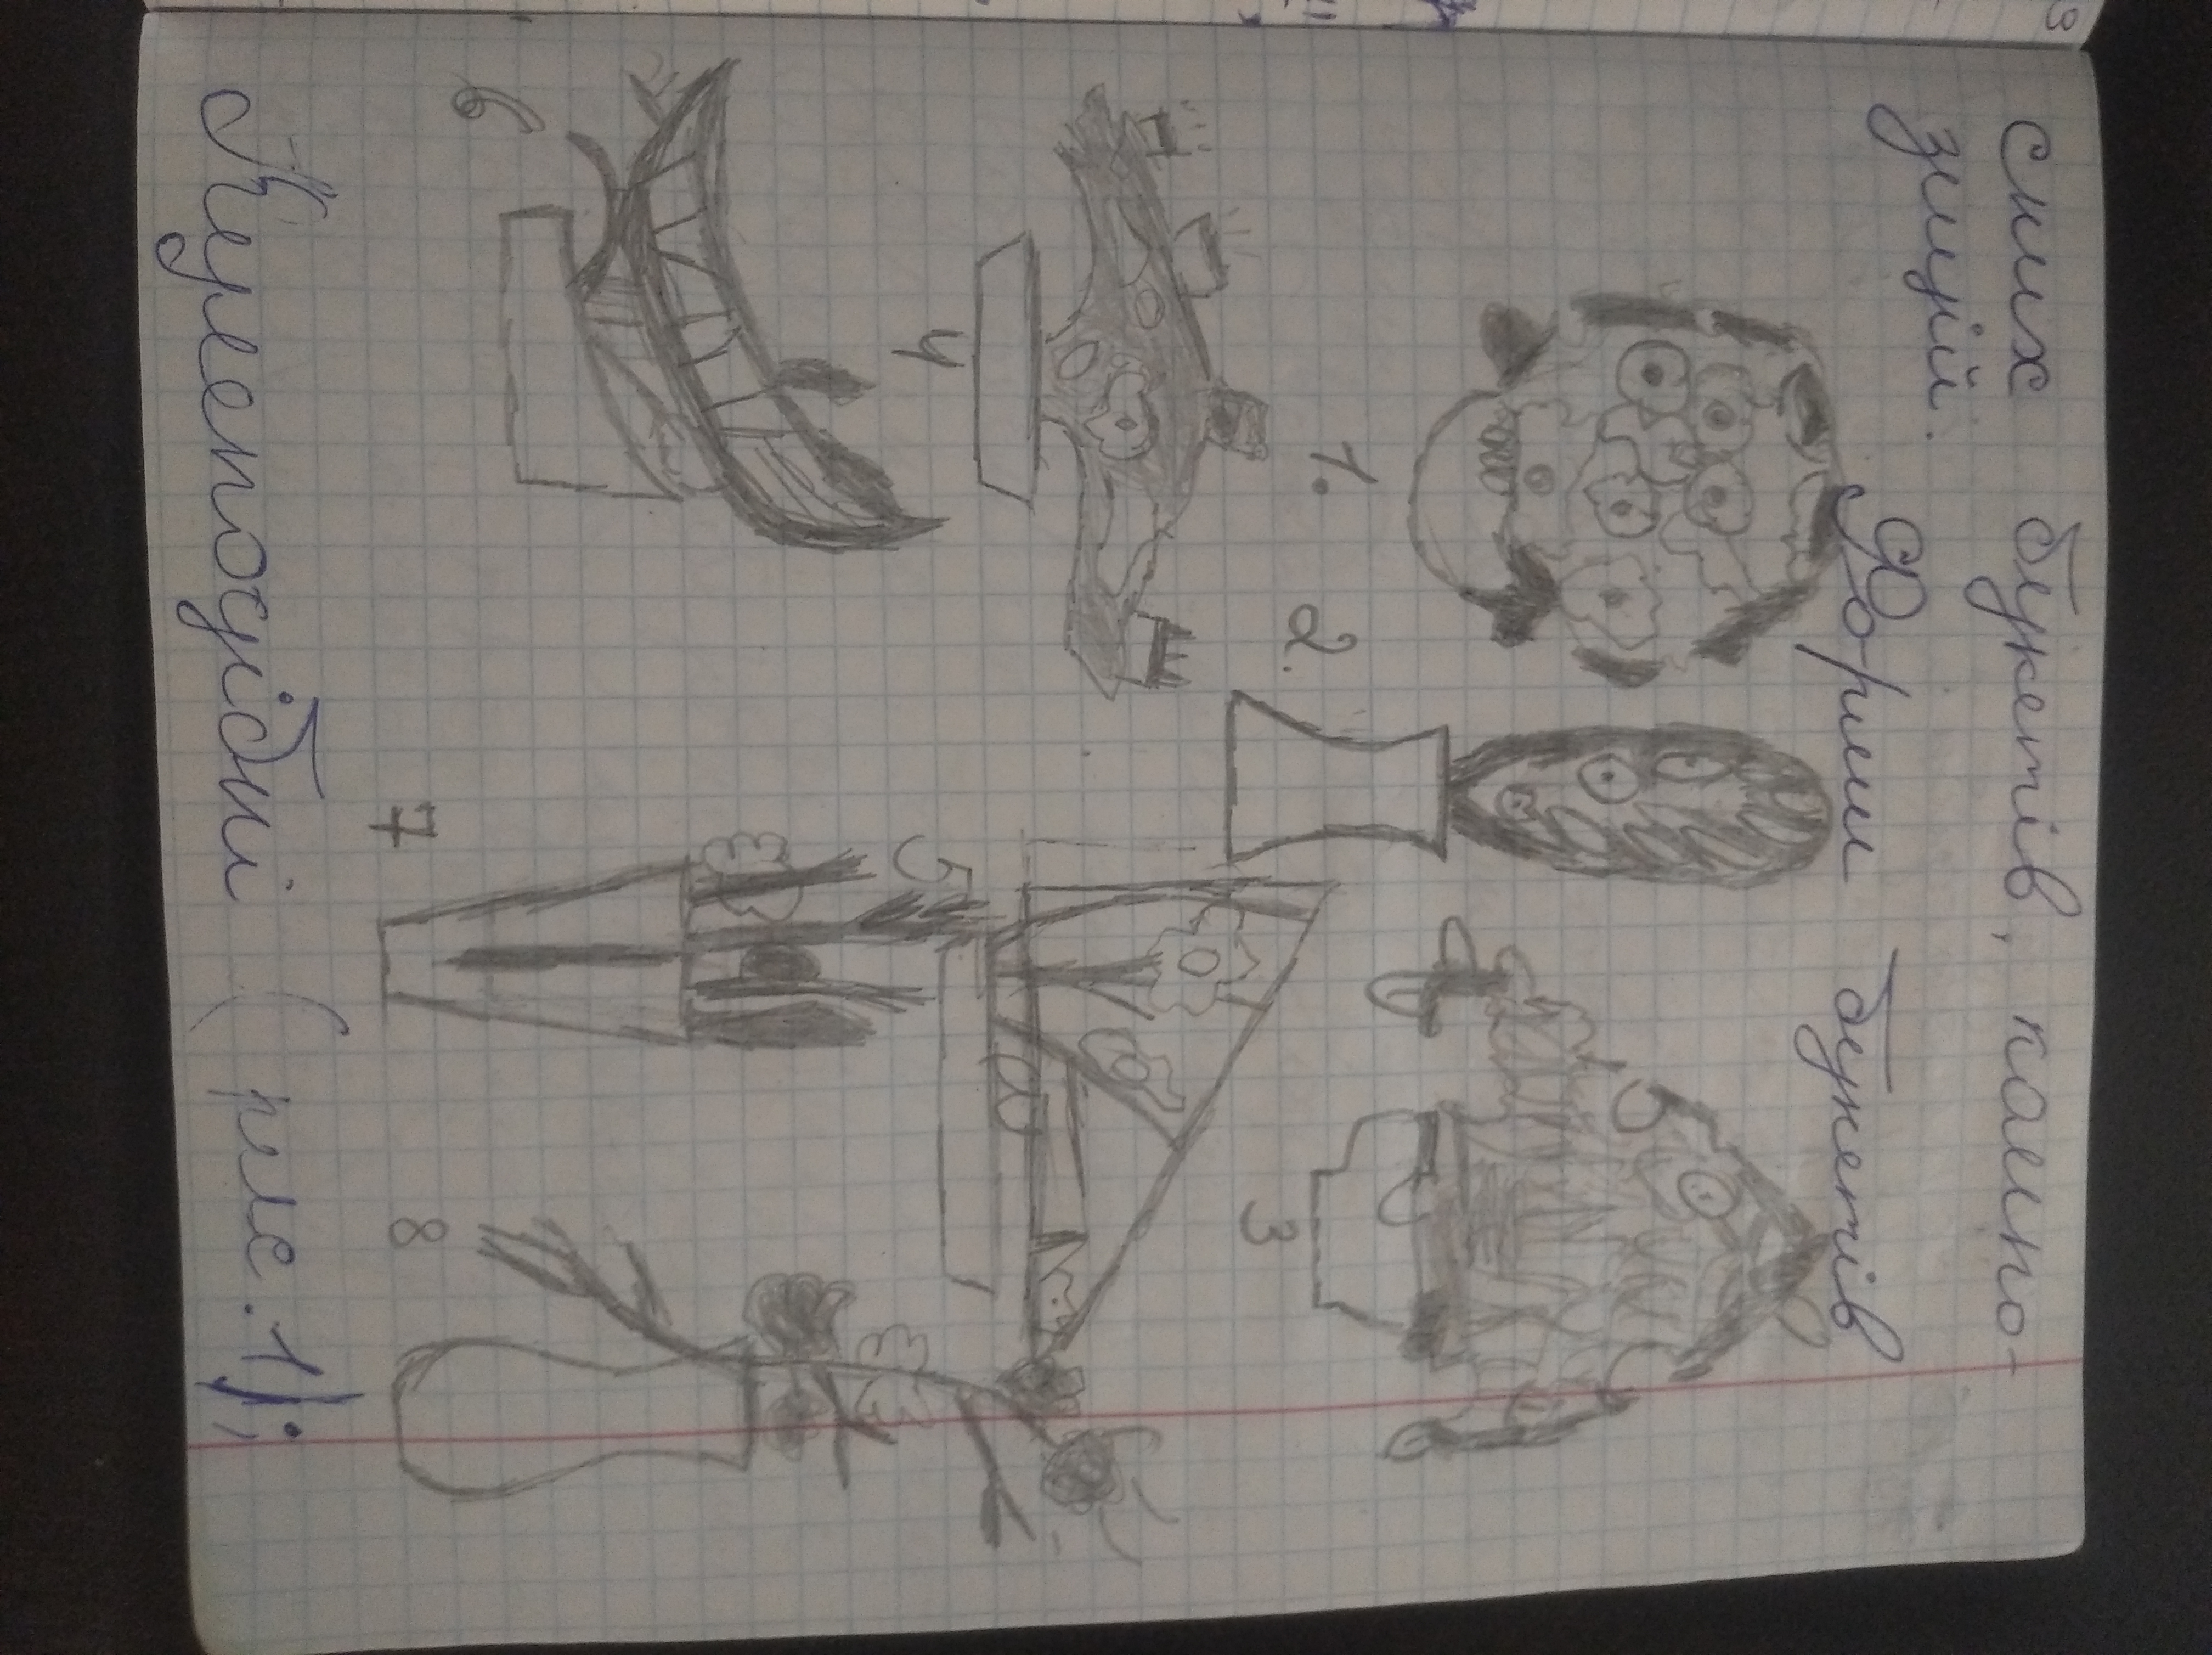 сних букетів, компо-
зицій.
Форми букетів
1.
2.
3
4
5
6
7
8
Кулеподібні (рис. 1);